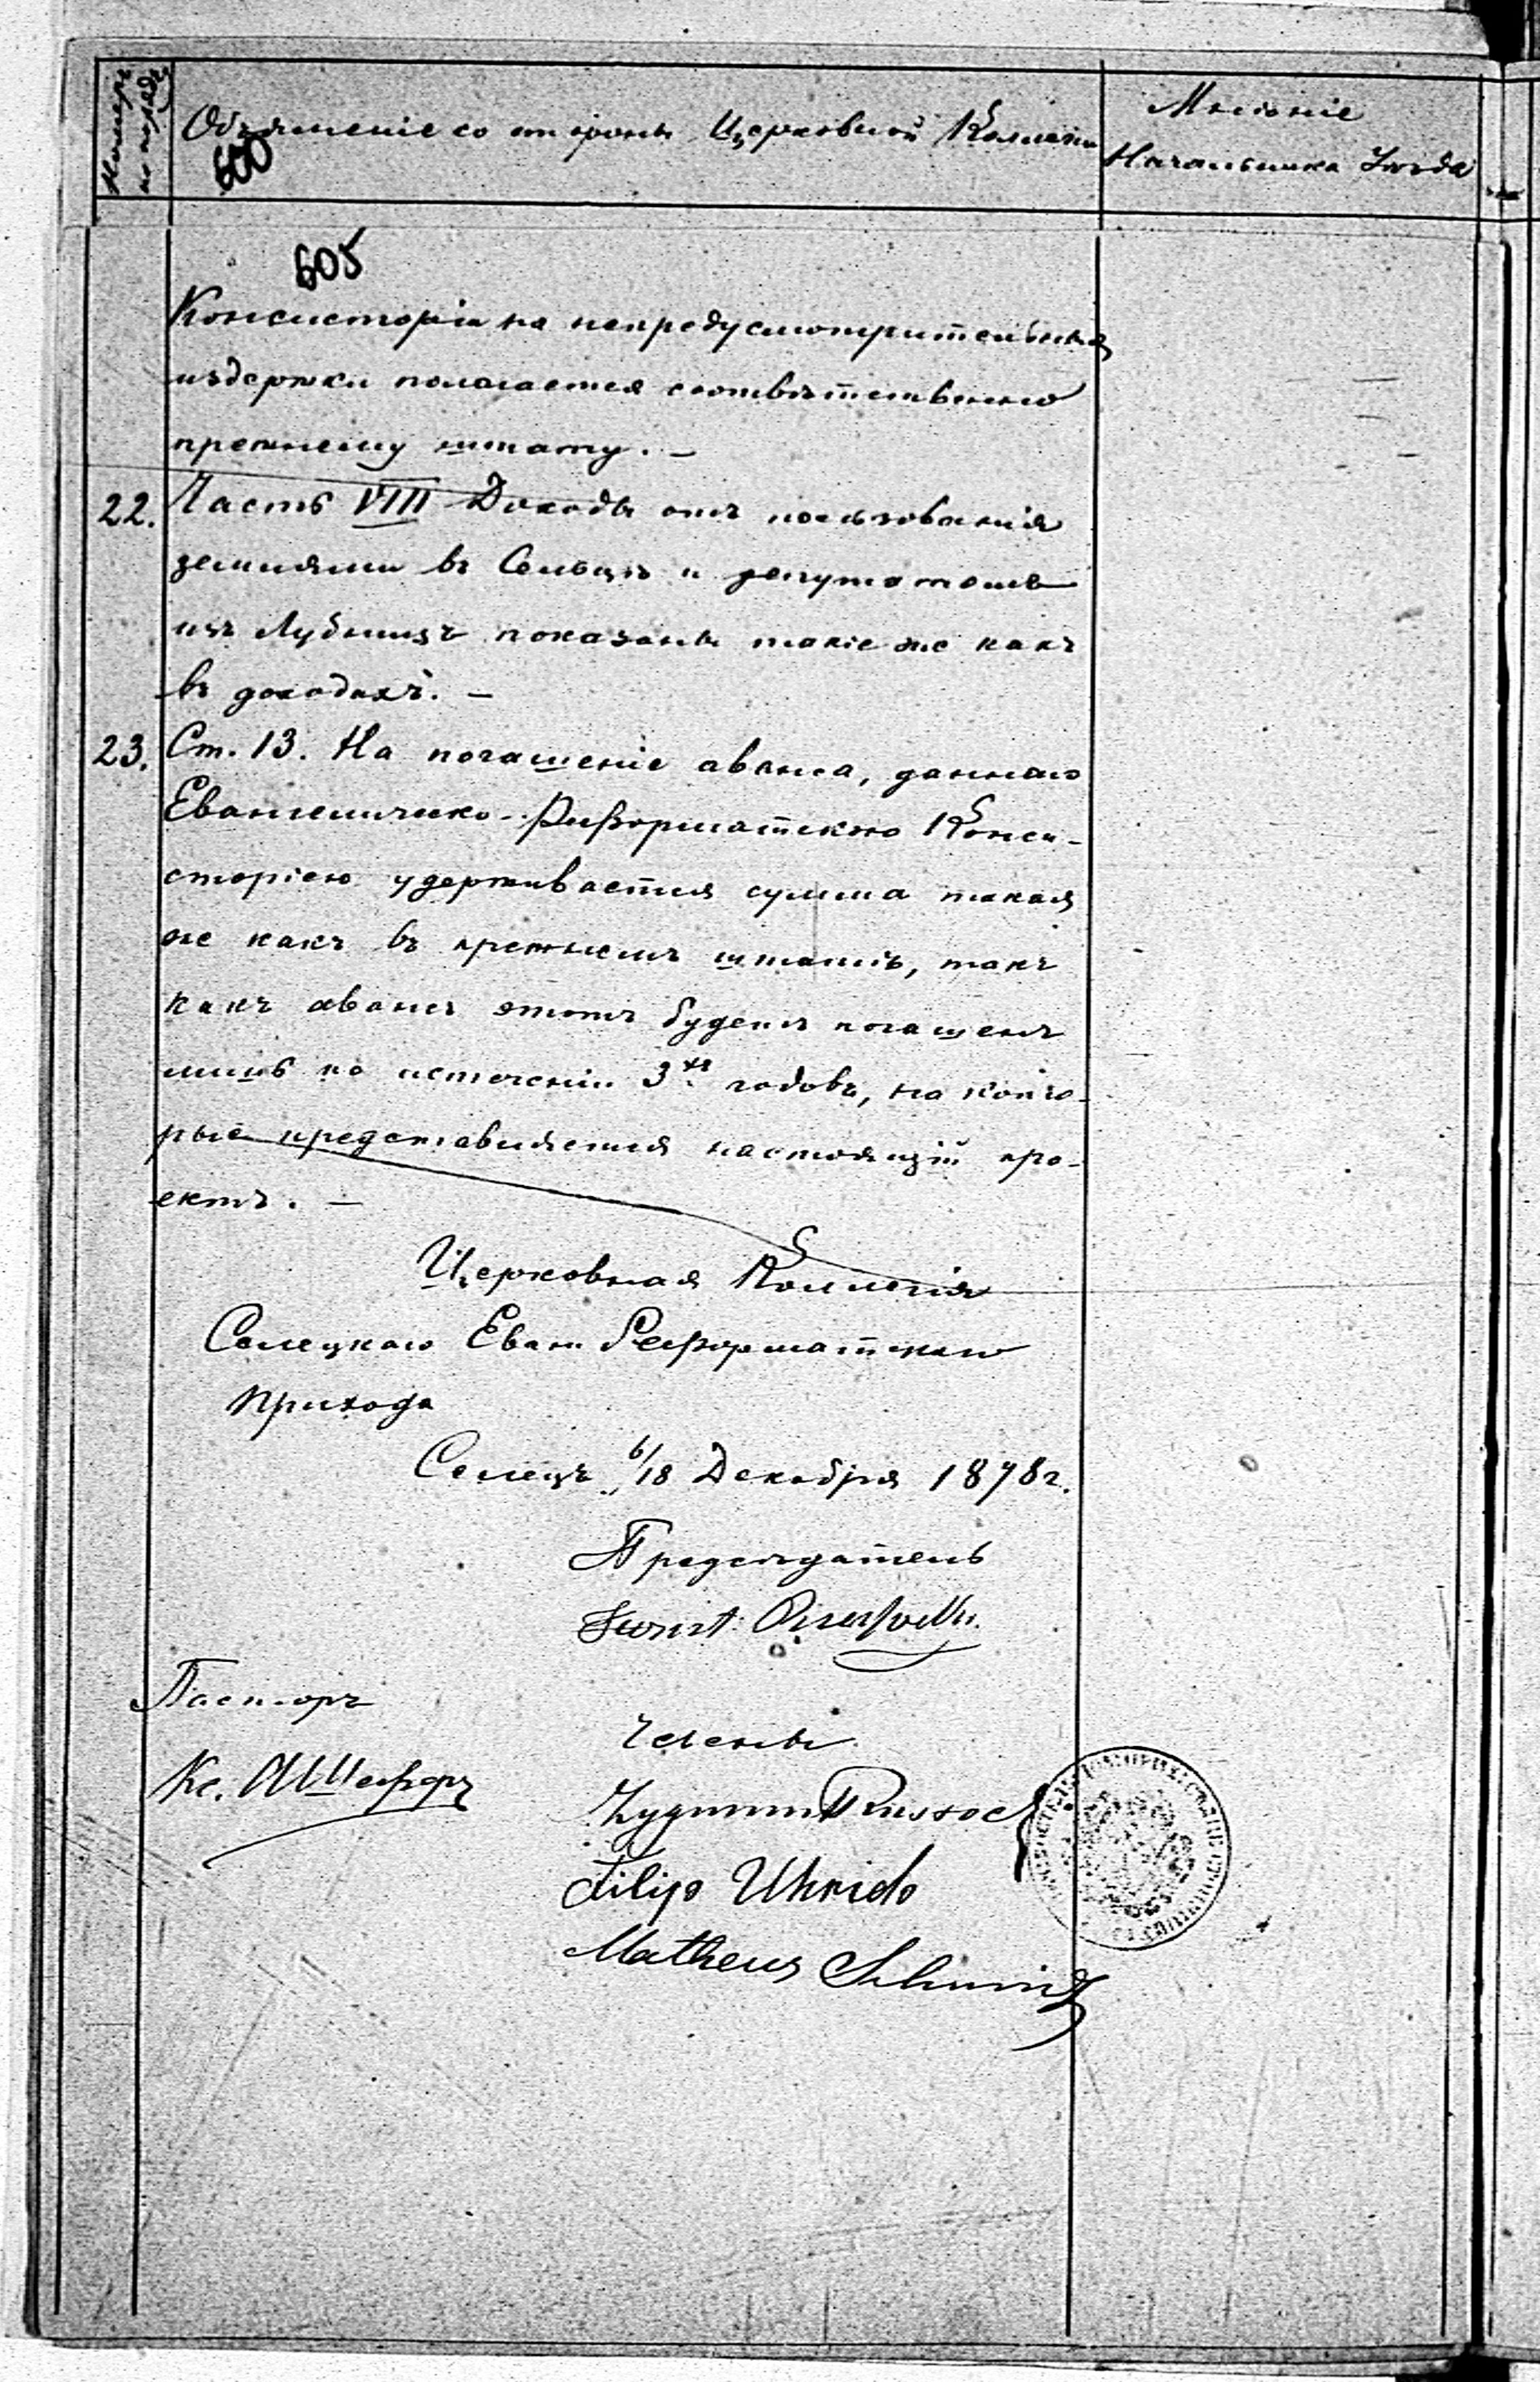 Номеръ по порядку
Объясненіе со стороны Церковной Коллегіи
Мнѣніе
Начальника Уѣзда
600
605
Консисторіи на непредусмотрительныя
издержки полагается соотвѣтственно
прежнему штату. —
22. Часть VIII Доходы отъ пользованія
землями въ Сельцѣ и депутатомъ
изъ Лубницъ показаны такіе же какъ
въ доходахъ. —
23. Ст. 13. На погашеніе аванса, даннаго
Евангелическо-Реформатскою Конси-
сторіею удерживается сумма такая
же какъ въ прежнемъ штатѣ, такъ
какъ авансъ этотъ будетъ погашенъ
лишь по истеченіи 3хъ годовъ, на кото-
рые представляется настоящій про-
ектъ. —
Церковная Коллегія
Селецкаго Еванг Реформатскаго
Прихода
Селецъ 6/18 Декабря 1878 г.
Предсѣдатель
Пасторъ
Члены
Кс. А Шеферъ
Zygmunt
Filip
Matheus Schmidt